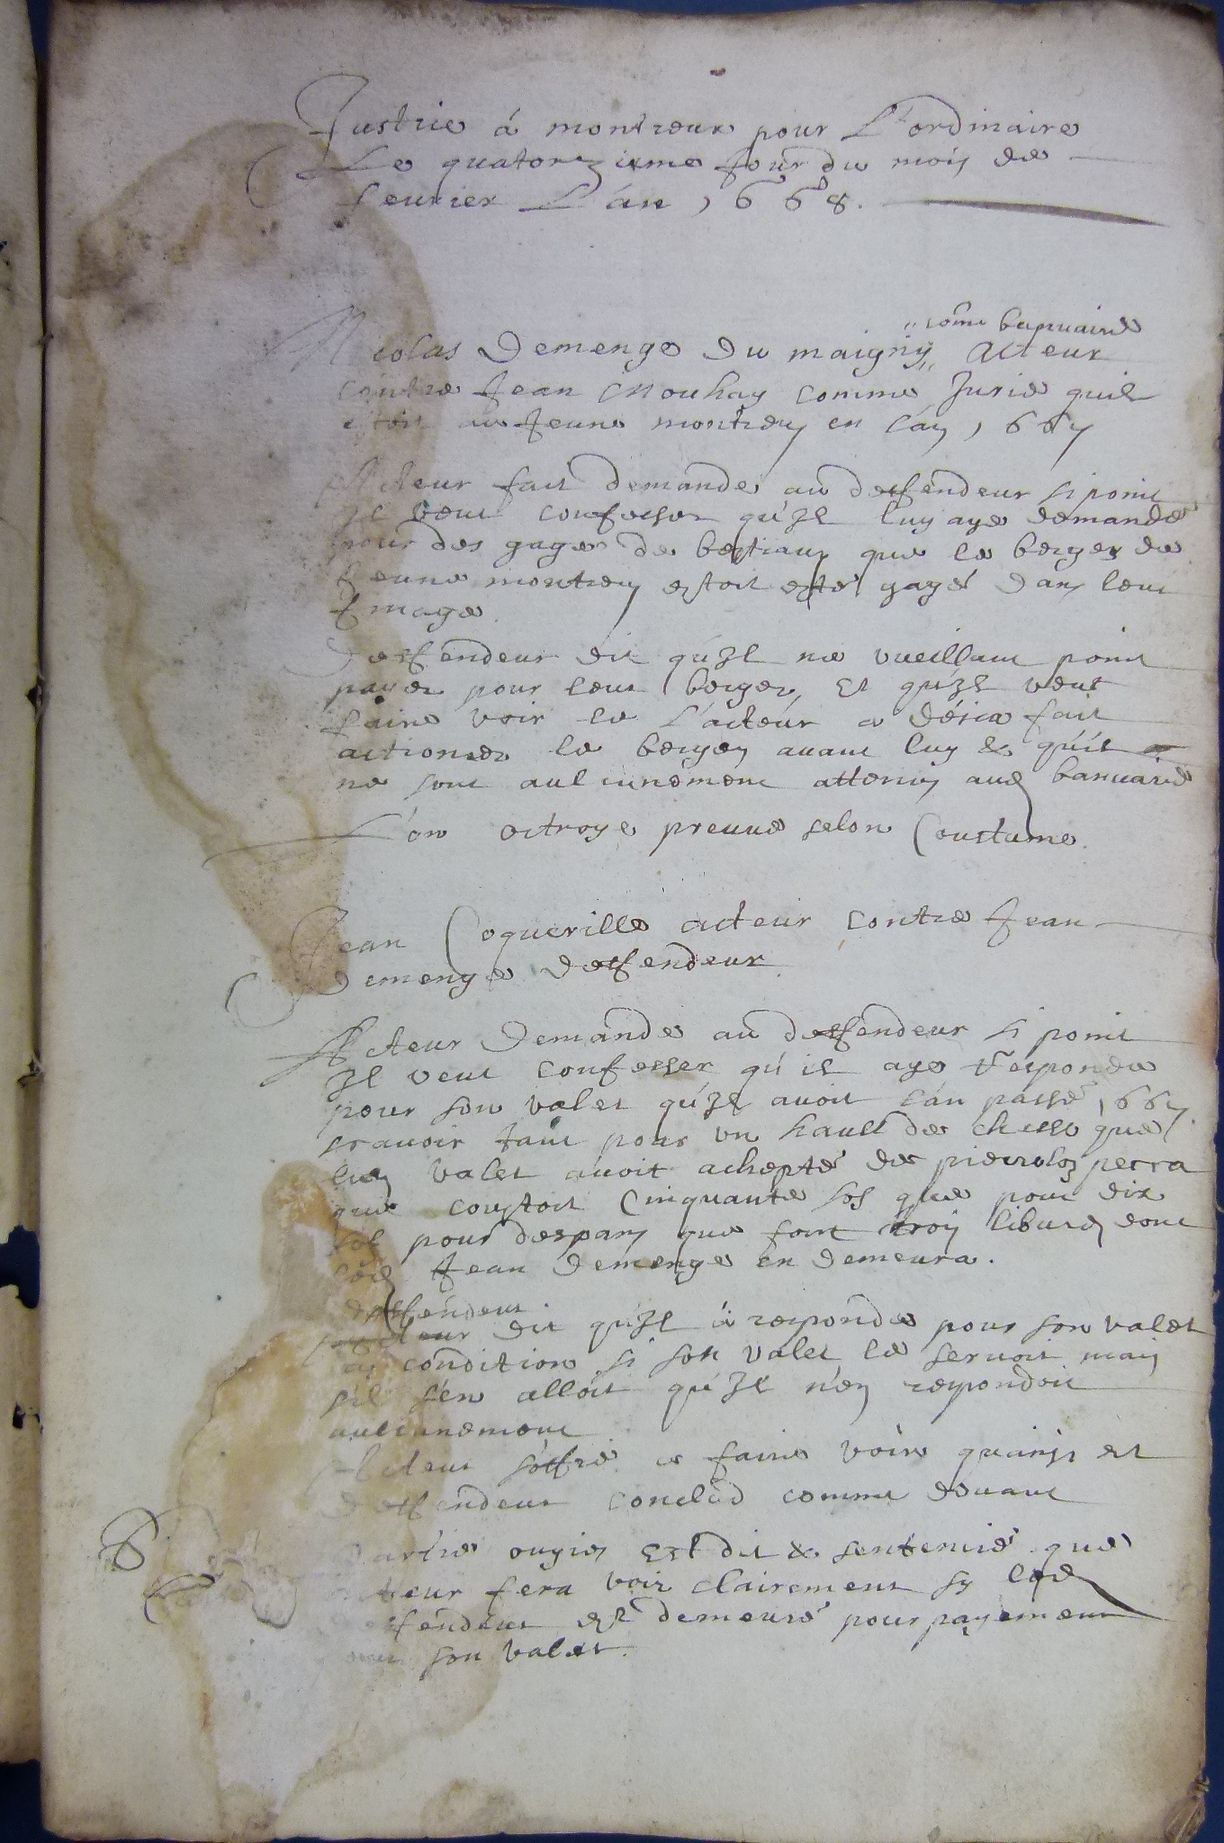 Justice á montreux pour L'ordinaire
Le quatorzieme Jour du mois de
feurier L'án 1668.
come banuaire
Nicolas Demenge Du maigny Acteur
contre Jean Mouhay comme Jurie quil
estoit au Jeune montreu en l'án 1667
Acteur fait demande au deffendeur si point
Jl veut confesser qu'Jl luy aye demandé
pour des gages de bestiaux que le berger de
Jeune montreu estoit esté gagé dans leur
finage.
Deffendeur dit qu'Jl ne vueillant point
payer pour leur berger, Et qu'Jl veut
faire voir que l'acteur a désia fait
actioner le berger auant luy & qu'il
ne sont aulcunement attenu aud banuaire
L'on octroye preuue selon Coustume.
Jean Coquerille acteur contre Jean
Demenge Deffendeur
Acteur Demande au deffendeur si point
Jl veut confesser qu'il aye Respondu
pour son valet qu'Jl auoit l'án passé 1667
scauoir tant pour vn hault de chesse que
led valet auoit achepté de pierrolo perra
que coustoit Cinquante sols que pour dix
sols pour despans que font trois liburs dont
led Jean Demenge en demeura.
deffendeur
dit qu'Jl á respondu pour son valet
condition si son valet le seruoit mais
s'il s'en alloit qu'Jl n'en respondoit
aulcunement
Acteur s'offre a faire voir quainsi est
Deffendeur conclud comme deuant
Partie ouyie Est dit & sentencié que
acteur fera voir clairement sy led
deffendeur est demeuré pour payement
pour son valet.